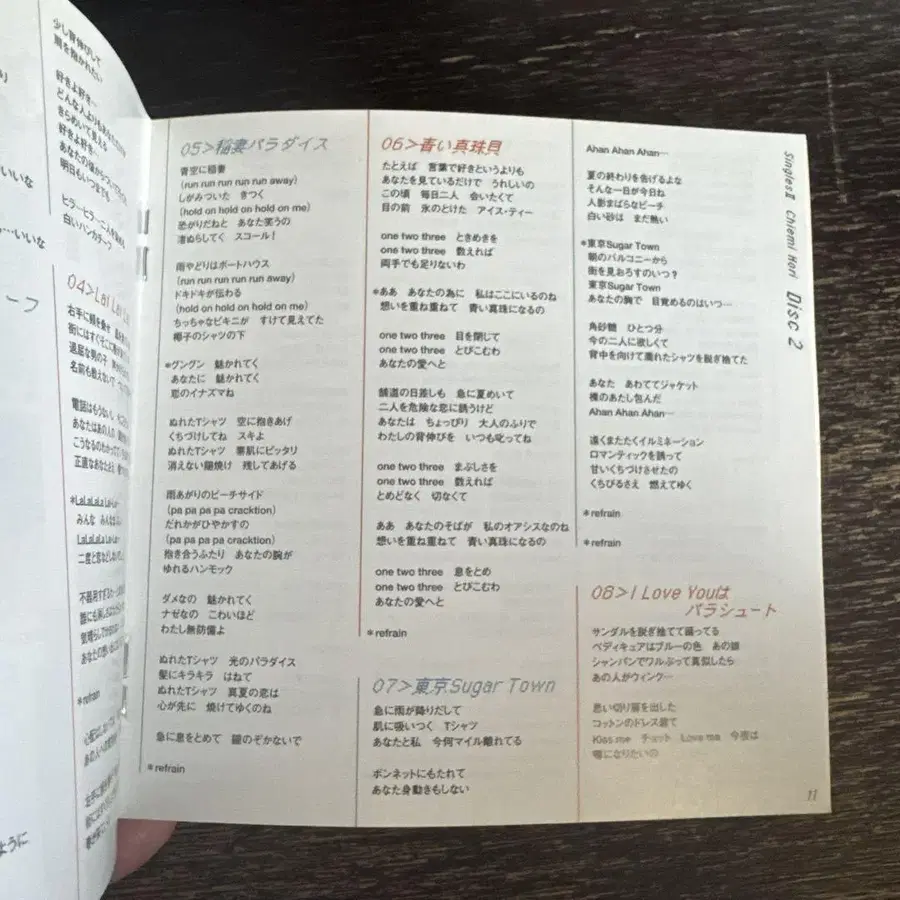 少し背伸びして
肩を抱かれたい
好きよ好き…
好きよ好き…
明日もいつまでも
白いハンカチーフ
いいな
…いいな
ーフ
ように
04>LaI LaI La
右手に
名前も
電話はもうない
あなたはあの人の
*LaLaLaLa La-La-
みんな
LaLaLaLa La-La-
*refrain
05>稲妻パラダイス
青空に稲妻
(run run run run run away)
しがみついた きつく
(hold on hold on hold on me)
恐がりだねと あなた笑うの
渚ぬらしてく スコール!
雨やどりはボートハウス
(run run run run run away)
ドキドキが伝わる
(hold on hold on hold on me)
ちっちゃなビキニが すけて見えてた
椰子のシャツの下
*グングン 魅かれてく
あなたに 魅かれてく
恋のイナズマね
ぬれたTシャツ 空に抱きあげ
くちづけしてね スキよ
ぬれたTシャツ 素肌にピッタリ
消えない陽焼け 残してあげる
雨あがりのビーチサイド
(pa pa pa pa cracktion)
だれかがひやかすの
(pa pa pa pa cracktion)
抱き合うふたり あなたの腕が
ゆれるハンモック
ダメなの 魅かれてく
ナゼなの こわいほど
わたし無防備よ
ぬれたTシャツ 光のパラダイス
髪にキラキラ はねて
ぬれたTシャツ 真夏の恋は
心が先に 焼けてゆくのね
急に息をとめて 瞳のぞかないで
*refrain
06>青い真珠貝
たとえば 言葉で好きというよりも
あなたを見ているだけで うれしいの
この頃 毎日二人 会いたくて
目の前 氷のとけた アイス・ティー
one two three ときめきを
one two three 数えれば
両手でも足りないわ
*ああ あなたの為に 私はここにいるのね
想いを重ね重ねて 青い真珠になるの
one two three 目を閉じて
one two three とびこむわ
あなたの愛へと
舗道の日差しも 急に夏めいて
二人を危険な恋に誘うけど
あなたは ちょっぴり 大人のふりで
わたしの背伸びを いつも叱ってね
one two three まぶしさを
one two three 数えれば
とめどなく 切なくて
ああ あなたのそばが 私のオアシスなのね
想いを重ね重ねて 青い真珠になるの
one two three 息をとめ
one two three とびこむわ
あなたの愛へと
*refrain
07>東京Sugar Town
急に雨が降りだして
肌に吸いつく Tシャツ
あなたと私 今何マイル離れてる
ボンネットにもたれて
あなた身動きもしない
Ahan Ahan Ahan…
夏の終わりを告げるよな
そんな一日が今日ね
人影まばらなビーチ
白い砂は まだ熱い
*東京Sugar Town
朝のバルコニーから
街を見おろすのいつ?
東京Sugar Town
あなたの胸で 目覚めるのはいつ…
角砂糖 ひとつ分
今の二人に欲しくて
背中を向けて濡れたシャツを脱ぎ捨てた
あなた あわててジャケット
裸のあたし包んだ
Ahan Ahan Ahan…
遠くまたたくイルミネーション
ロマンティックを誘って
甘いくちづけさせたの
くちびるさえ 燃えてゆく
*refrain
*refrain
08>I Love Youは
パラシュート
サンダルを脱ぎ捨てて踊ってる
ペディキュアはブルーの色 あの娘
シャンパンでワルぶって真似したら
あの人がウィンク…
思い切り肩を出した
コットンのドレス着て
Kiss me チョット Love me 今夜は
噂になりたいの
SinglesⅡ Chiemi Hori Disc 2
11